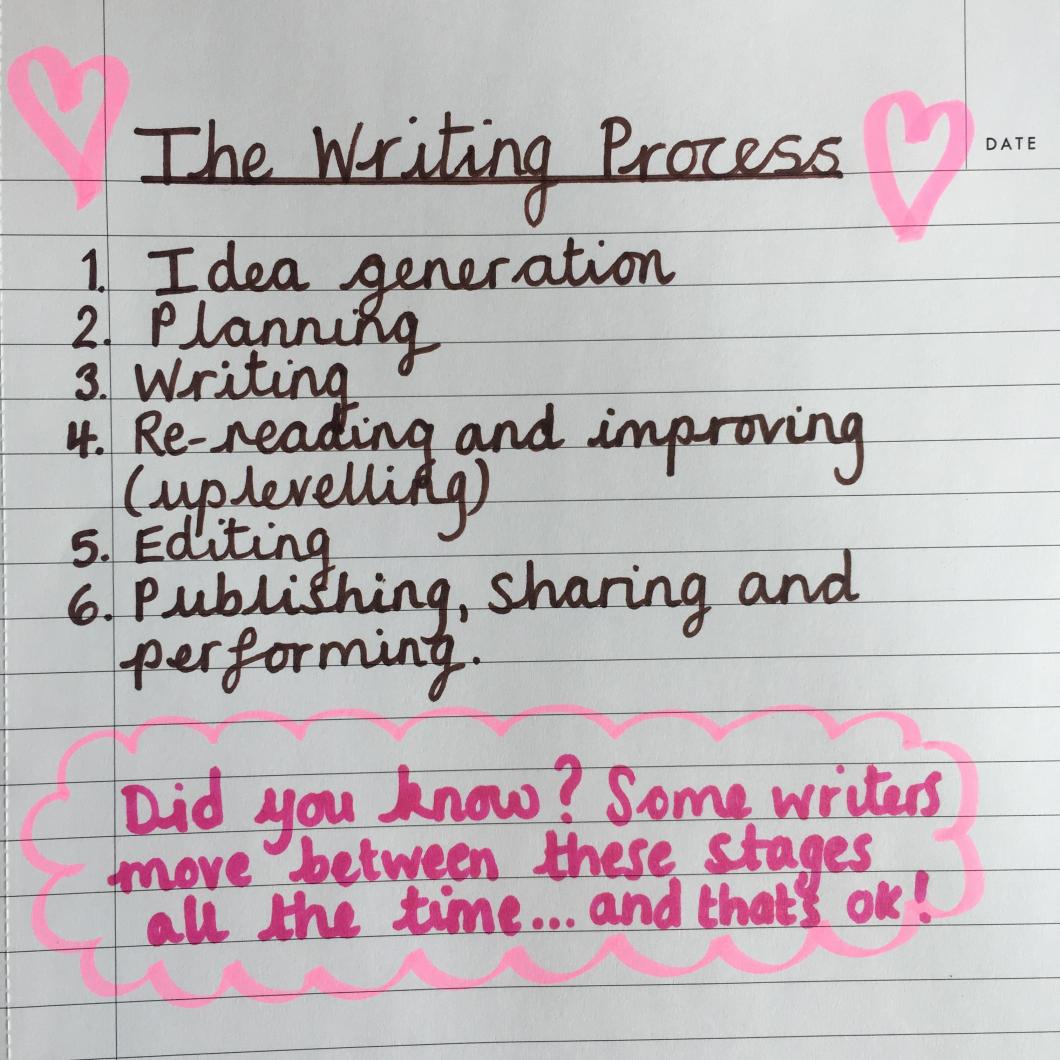 The Writing Process
DATE
1. Idea generation
2. Planning
3. Writing
4. Re-reading and improving
(uplevelling)
5. Editing
6. Publishing, sharing and
performing.
Did you know? Some writers
move between these stages
all the time... and that's ok!